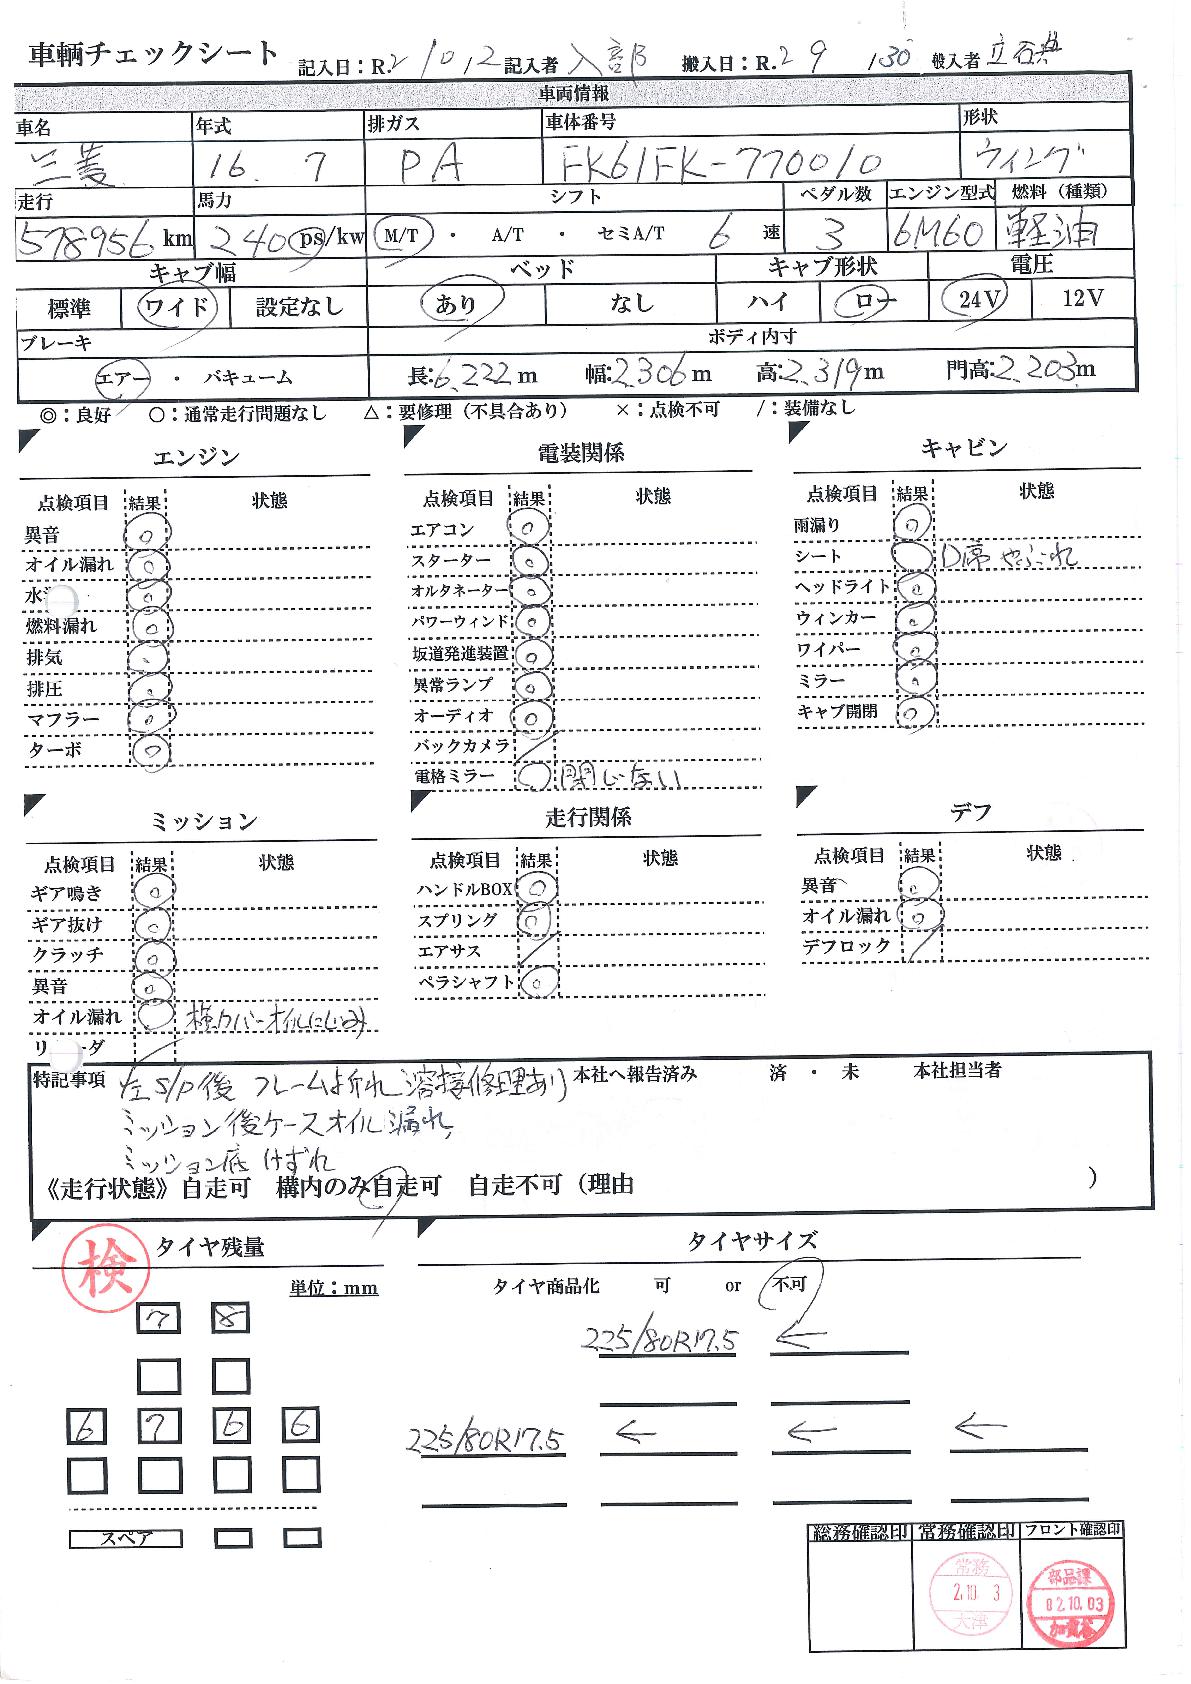 車輌チェックシート 記入日：R.2/10/2 記入者 入部 搬入日：R.2 9 /30 般入者 立石
車両情報
車名 年式 排ガス 車体番号 形状
三菱 16. 7 PA FK61FK-770010 ウィング
走行 馬力 シフト ペダル数 エンジン型式 燃料（種類）
578956 km 240 ps/kw M/T ・ A/T ・ セミA/T 6 速 3 6M60 軽油
キャブ幅 ベッド キャブ形状 電圧
標準 ワイド 設定なし あり なし ハイ ロー 24V 12V
ブレーキ ボディ内寸
エアー ・ バキューム 長:6.222m 幅:2.306m 高:2.319m 門高:2.203m
◎：良好 ○：通常走行問題なし △：要修理（不具合あり） ×：点検不可 /：装備なし
エンジン
点検項目 結果 状態
異音 ◎
オイル漏れ ◎
水 ◎
燃料漏れ ◎
排気 ◎
排圧 ◎
マフラー ◎
ターボ ◎
電装関係
点検項目 結果 状態
エアコン ◎
スターター ◎
オルタネーター ◎
パワーウィンド ◎
坂道発進装置 ◎
異常ランプ ◎
オーディオ ◎
バックカメラ /
電格ミラー ○ 閉じない
キャビン
点検項目 結果 状態
雨漏り ◎
シート ○ D席やぶれ
ヘッドライト ◎
ウィンカー ◎
ワイパー ◎
ミラー ◎
キャブ開閉 ◎
ミッション
点検項目 結果 状態
ギア鳴き ◎
ギア抜け ◎
クラッチ ◎
異音 ◎
オイル漏れ ○ 横カバーオイルにじみ
リ ーダ /
走行関係
点検項目 結果 状態
ハンドルBOX ◎
スプリング ◎
エアサス /
ペラシャフト ◎
デフ
点検項目 結果 状態
異音 ◎
オイル漏れ ◎
デフロック /
特記事項 左S/P後 フレーム折れ 溶接修理あり 本社へ報告済み 済 ・ 未 本社担当者
ミッション後ケースオイル漏れ
ミッション底 けずれ
《走行状態》自走可 構内のみ自走可 自走不可（理由 ）
検 タイヤ残量
単位：mm
7 8
6 7 6 6
スペア
タイヤサイズ
タイヤ商品化 可 or 不可
225/80R17.5 ←
225/80R17.5 ← ← ←
総務確認印 常務確認印 フロント確認印
常務 2.10. 3 大津
部品課 02.10.03